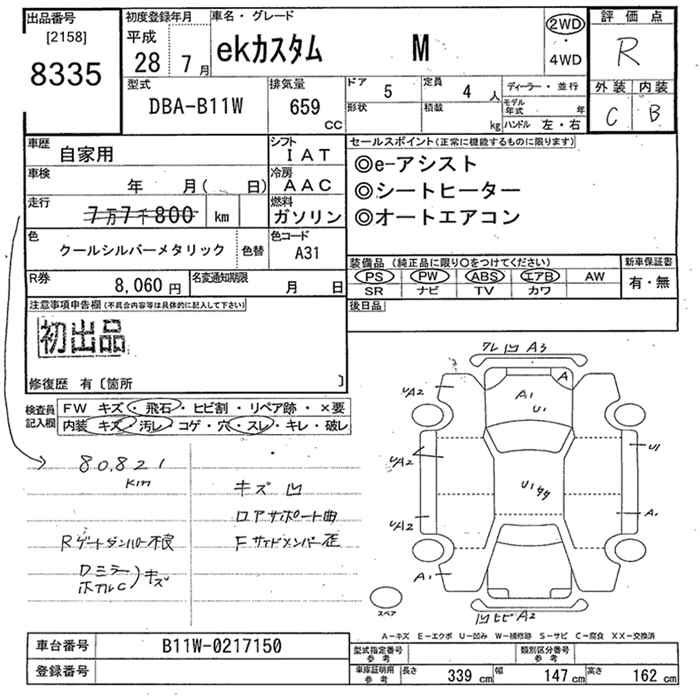 出品番号
[2158]
8335
初度登録年月
平成
28 7月
車名・グレード
ekカスタム M
2WD
・
4WD
評価点
R
外装 内装
C B
型式
DBA-B11W
排気量
659
CC
ドア 5
形状
定員 4人
積載 kg
ディーラー・並行
モデル年式 年
ハンドル 左・右
車歴
自家用
シフト
IAT
車検
年 月( 日)
冷房
AAC
走行
7万7千800 km
燃料
ガソリン
色
クールシルバーメタリック
色替
色コード
A31
R券
8,060円
名変通知期限
月 日
セールスポイント(正常に機能するものに限ります)
◎e-アシスト
◎シートヒーター
◎オートエアコン
装備品(純正品に限り○をつけてください)
PS PW ABS エアB AW
SR ナビ TV カワ
新車保証書
有・無
後日品
注意事項申告欄(不具合内容等は具体的に記入して下さい)
初出品
修復歴 有〔箇所 〕
検査員
記入欄
FW キズ・飛石・ヒビ割・リペア跡・×要
内装 キズ・汚レ・コゲ・穴・スレ・キレ・破レ
80,821
km
キズ 凹
ロアサポート曲
Rゲートダンパー不良
Fサイドメンバー歪
Dミラー
ホイルC)キズ
ワレ 凹 A3
A
A1
U1
UA2
UA2
U1
U1
UA2
A1
A1
凹 ヒビ A2
スペア
A-キズ E-エクボ U-凹み W-補修跡 S-サビ C-腐食 XX-交換済
車台番号
B11W-0217150
登録番号
型式指定番号
参考
類別区分番号
参考
車庫証明用
参考
長さ 339cm
幅 147cm
高さ 162cm